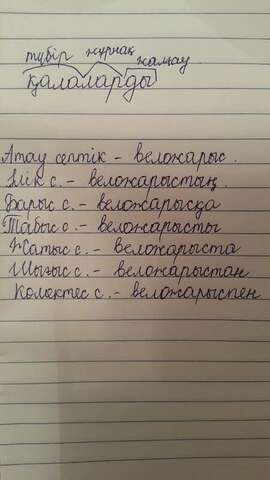 түбір жұрнақ жалғау
қаламарды
Атау септік - веложарыс.
Ілік с. - веложарыстың.
Барыс с - веложарысқа
Табыс с - веложарысты
Жатыс с. - веложарыста
Шығыс с. - веложарыстан
Көмектес с. - веложарыспен